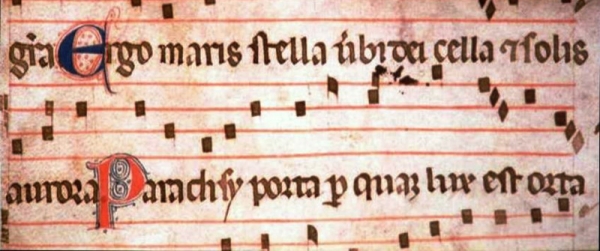 gr̃a Ergo maris stella ũbi dei cella ⁊ solis
aurora Paradisy porta ꝑ quaꝫ lux est orta